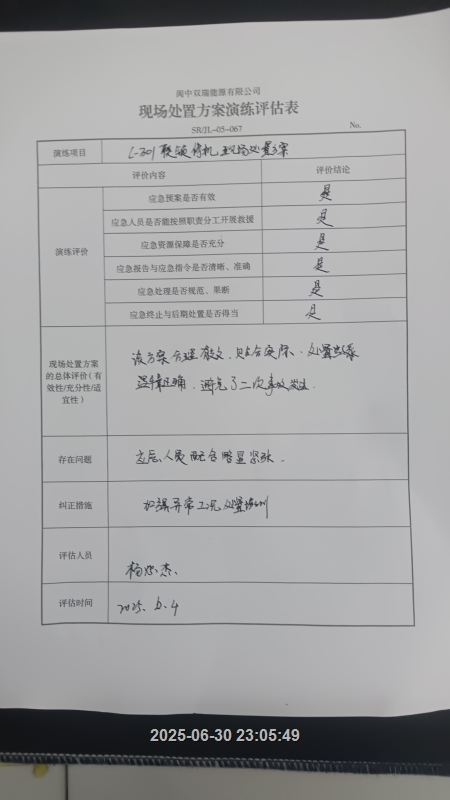 阆中双瑞能源有限公司
现场处置方案演练评估表
SR/JL-05-067
No.
演练项目
C-301联锁停机现场处置方案
评价内容
评价结论
演练评价
应急预案是否有效
是
应急人员是否能按照职责分工开展救援
是
应急资源保障是否充分
是
应急报告与应急指令是否清晰、准确
是
应急处理是否规范、果断
是
应急终止与后期处置是否得当
是
现场处置方案
的总体评价(有
效性/充分性/适
宜性)
该方案合理有效,贴合实际,处置
正确,避免了二次事故发生.
存在问题
应急人员配合略显紧张.
纠正措施
加强异常工况处置培训
评估人员
杨 杰.
评估时间
2025. 6. 4
2025-06-30 23:05:49